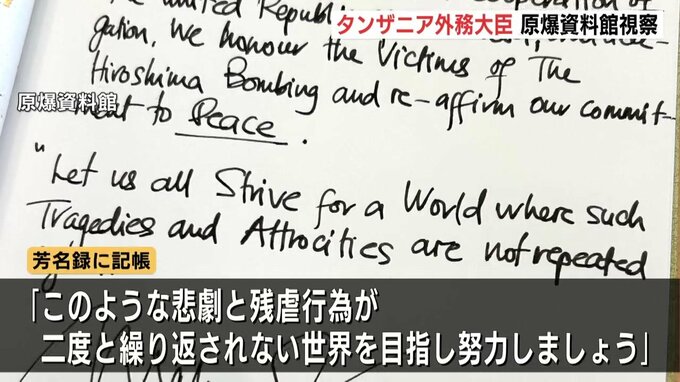 タンザニア外務大臣 原爆資料館視察
原爆資料館
the United Republi
gation, We honour the Victims of The
Hiroshima Bombing and re-affirm our commit-
ment to Peace.
"Let us all Strive for a World where such
Tragedies and Attrocities are not repeated
芳名録に記帳
「このような悲劇と残虐行為が
二度と繰り返されない世界を目指し努力しましょう」